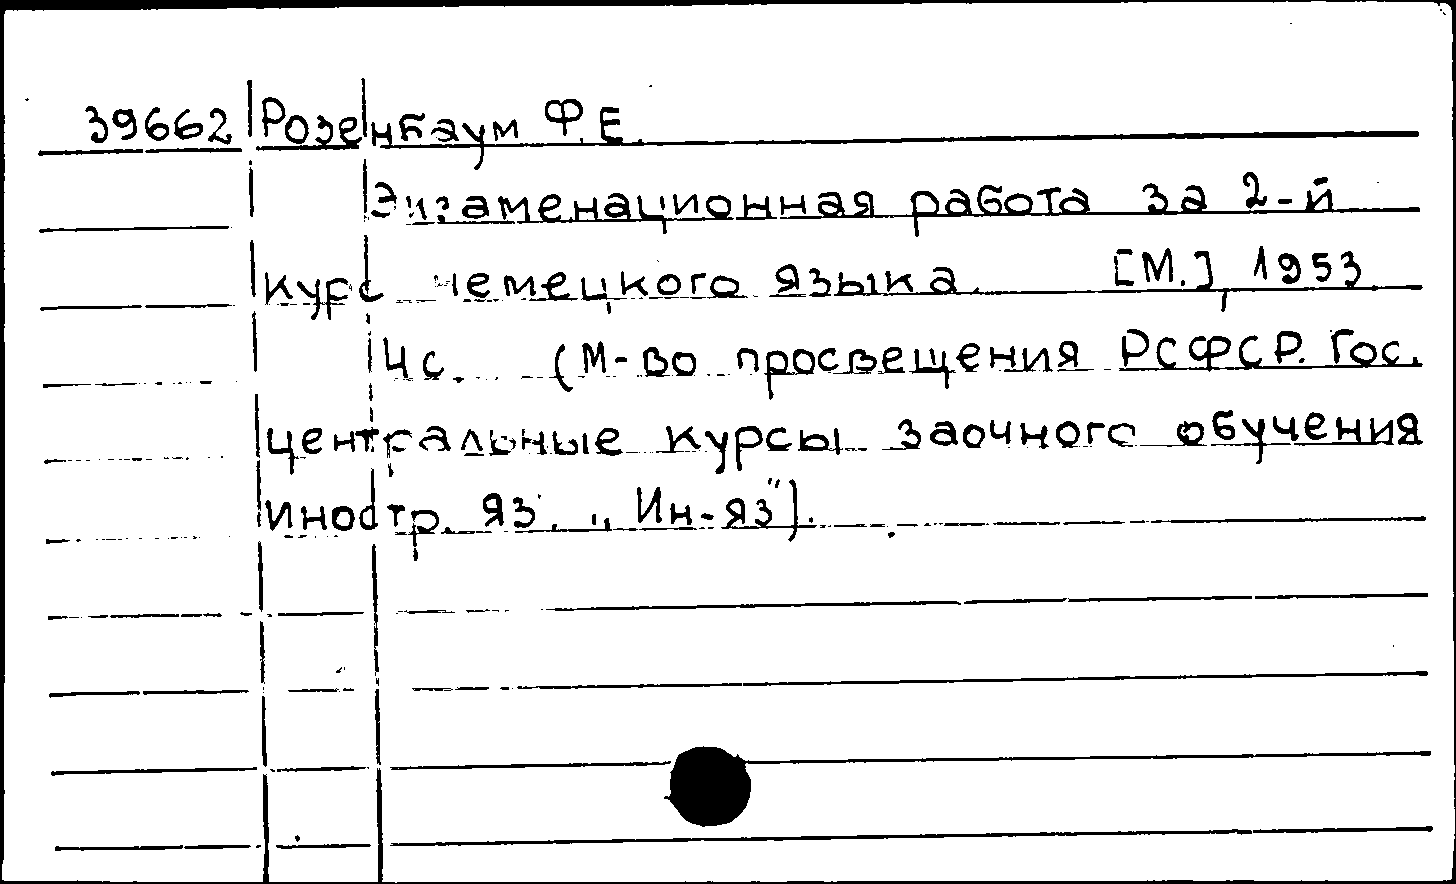 39662 Розенбаум Ф.Е.
Экзаменационная работа за 2-й
курс немецкого языка. [М.], 1953.
4 с. (М-во просвещения РСФСР. Гос.
центральные курсы заочного обучения
иностр. яз. „Ин-яз").